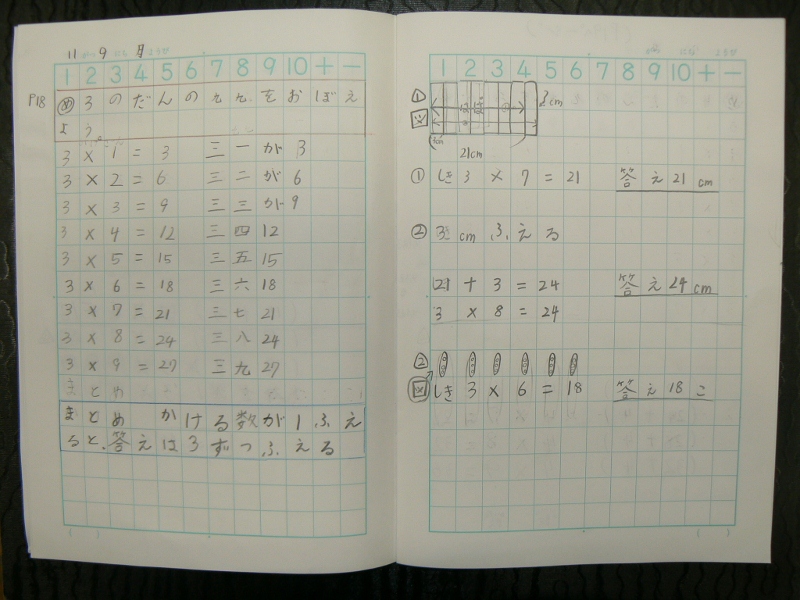 11 9 月
1 2 3 4 5 6 7 8 9 10 + −
P18
め 3のだんの九九をおぼえ
よう。
3 × 1 = 3 三一が3
3 × 2 = 6 三二が6
3 × 3 = 9 三三が9
3 × 4 = 12 三四12
3 × 5 = 15 三五15
3 × 6 = 18 三六18
3 × 7 = 21 三七21
3 × 8 = 24 三八24
3 × 9 = 27 三九27
まとめ
まとめ かける数が1ふえ
ると、答えは3ずつふえる
1 2 3 4 5 6 7 8 9 10 + −
① 3cm
図
21cm
① しき 3 × 7 = 21 答え21cm
② 3cm ふえる
21 + 3 = 24 答え24cm
3 × 8 = 24
②
図 しき 3 × 6 = 18 答え18こ